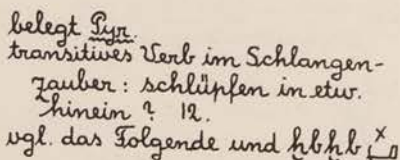 belegt Pyr.
transitives Verb im Schlangen-
zauber: schlüpfen in etw.
hinein? 12.
vgl. das Folgende und ḫbḫb